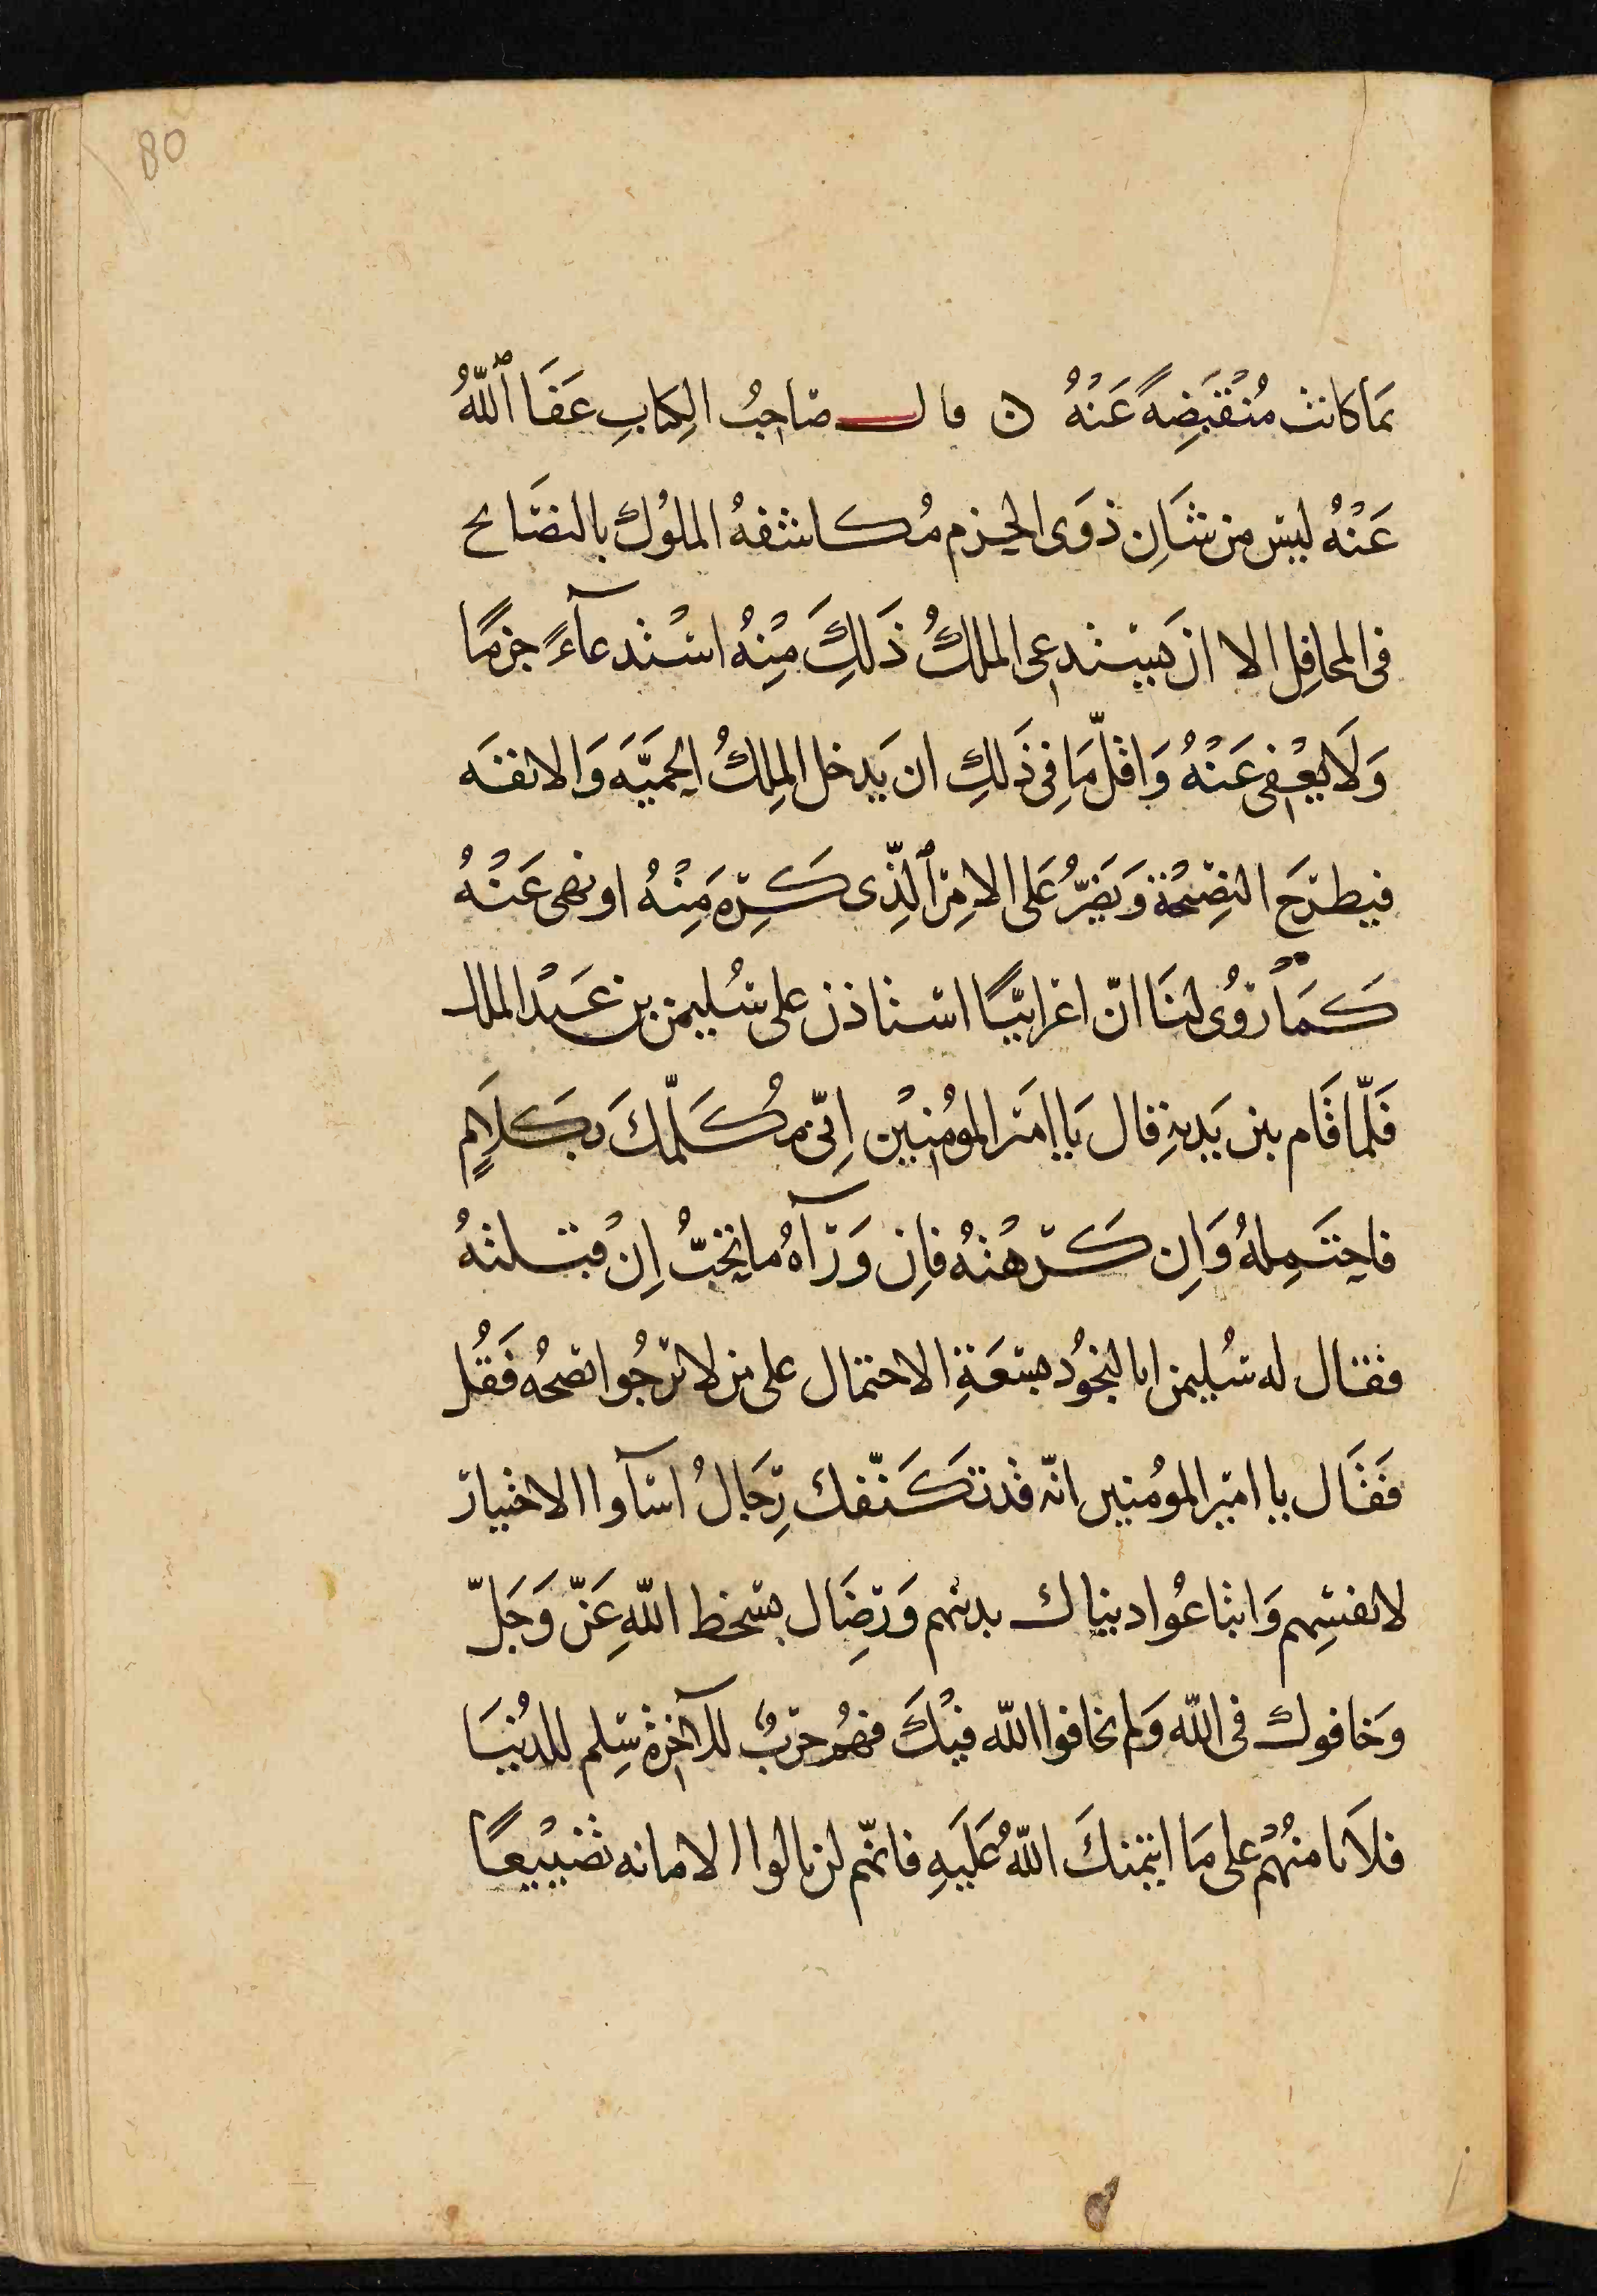 80
بما كانت مُنْقَبِضَةً عَنْهُ ن قال صَاحِبُ الكِتَابِ عَفَا ٱللّٰهُ
عَنْهُ ليس من شَانِ ذوى الحزم مُكاشفةُ الملوُك بالنصَائح
فى المحافِل الا ان يستدعى الملكُ ذَلِكَ مِنْهُ اسْتدعآءً جزمًا
وَلَا يعْفى عَنْهُ وَاقلّ مَا فِى ذَلِكِ ان يَدخل الملِكُ الحميَّه وَالانفَه
فيطرَحَ النصِيحُة وَيَصِرُّ عَلى الامِر ٱلَّذِى كَرِه مِنْهُ اونهى عَنْهُ
كَمَا رُوى لنَا انّ اعرابيًّا استاذن على سُليمن بن عَبْد الملك
فَلمّا قَام بين يَديهِ قال يَا امَير المؤُمِنيْن اِنّى مُكَلّمكَ بكَلاَمٍ
فاحِتَمِلهُ وَاِن كَرِهْتهُ فاِن وَرَآهُ ما تحِبُّ اِنْ قبلتهُ
فقال له سُليمن انا لنجُود بسَعَةِ الاحتمال على من لا نرجُوا نصحُه فَقُل
فَقَال يا امير المومُنين انّه قد تكَنّفك رِجَالُ اسآوا الاختيار
لانفسِهم وَابتاعُوا دنياك بدينهم وَرِضَاك بسخط اللّهِ عَزّ وَجَلّ
وَخافوك فى اللّه وَلم يخافوا اللّه فيْكَ فهُم حربٌ للآخِرة سِلم للدُنيَا
فلاَ تامنهُمْ على مَا ايتمنكَ اللّهُ عَلَيهِ فانهّم لن يالوا الامانه تضييْعًا